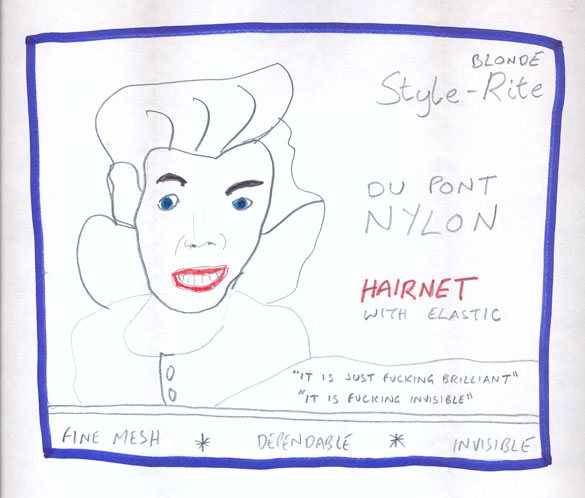 BLONDE
Style-Rite
DU PONT
NYLON
HAIRNET
WITH ELASTIC
"IT IS JUST FUCKING BRILLIANT"
"IT IS FUCKING INVISIBLE"
FINE MESH * DEPENDABLE * INVISIBLE